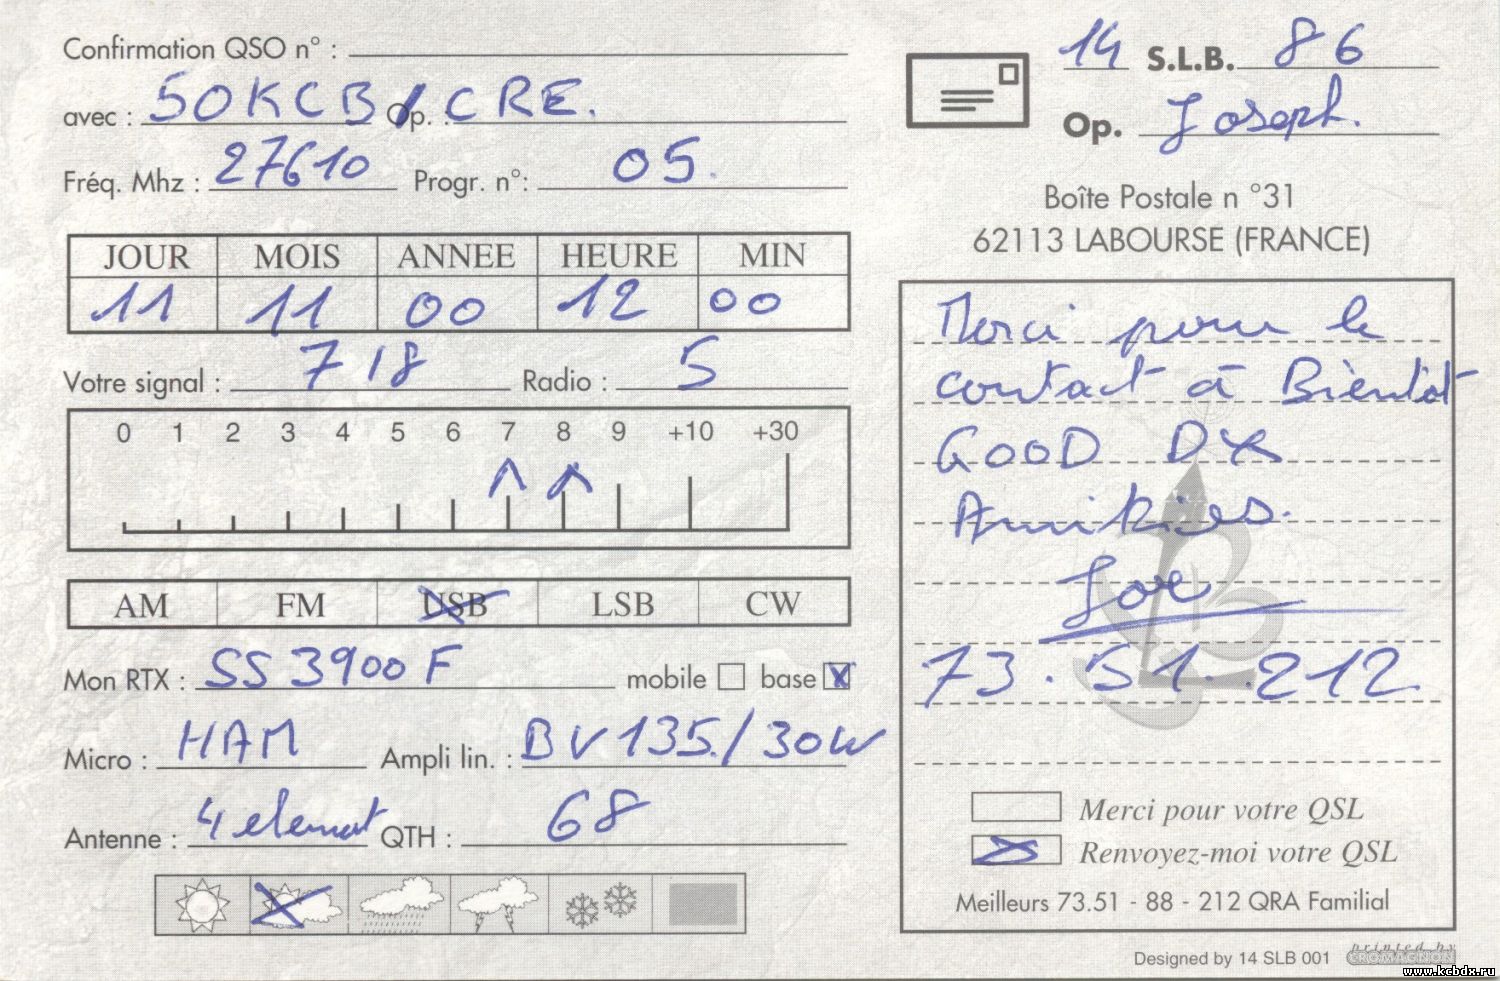 Confirmation QSO n° :
avec : 50KCB / Op. : CRE.
Fréq. Mhz : 27610 Progr. n°: 05.
JOUR MOIS ANNEE HEURE MIN
11 11 00 12 00
Votre signal : 7/8 Radio : 5
0 1 2 3 4 5 6 7 8 9 +10 +30
AM FM USB LSB CW
Mon RTX : SS 3900 F mobile base X
Micro : HAM Ampli lin. : BV 135./30W
Antenne : 4 element QTH : 68
14 S.L.B. 86
Op. Joseph.
Boîte Postale n °31
62113 LABOURSE (FRANCE)
Merci pour le
contact à Bientot
GOOD DX
Amitiés.
Joe
73.51.212
Merci pour votre QSL
Renvoyez-moi votre QSL
Meilleurs 73.51 - 88 - 212 QRA Familial
Designed by 14 SLB 001
printed by
CROMAGNON
www.kcbdx.ru